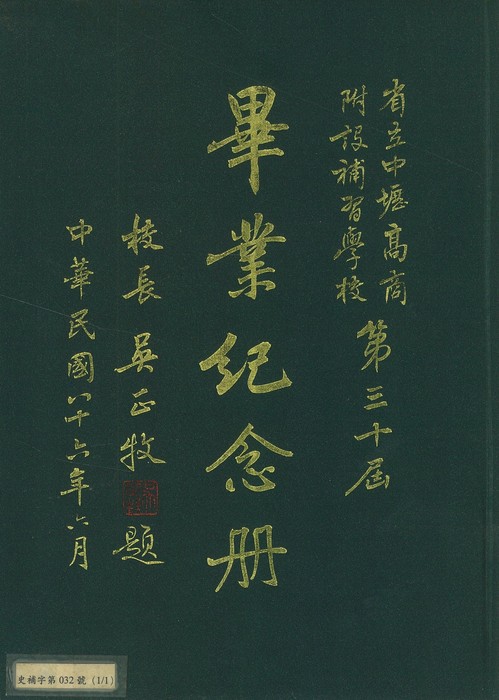 省立中壢高商
附設補習學校
第三十屆
畢業紀念册
校長 吳正牧 題
中華民國八十六年六月
史補字第 032 號 (1/1)